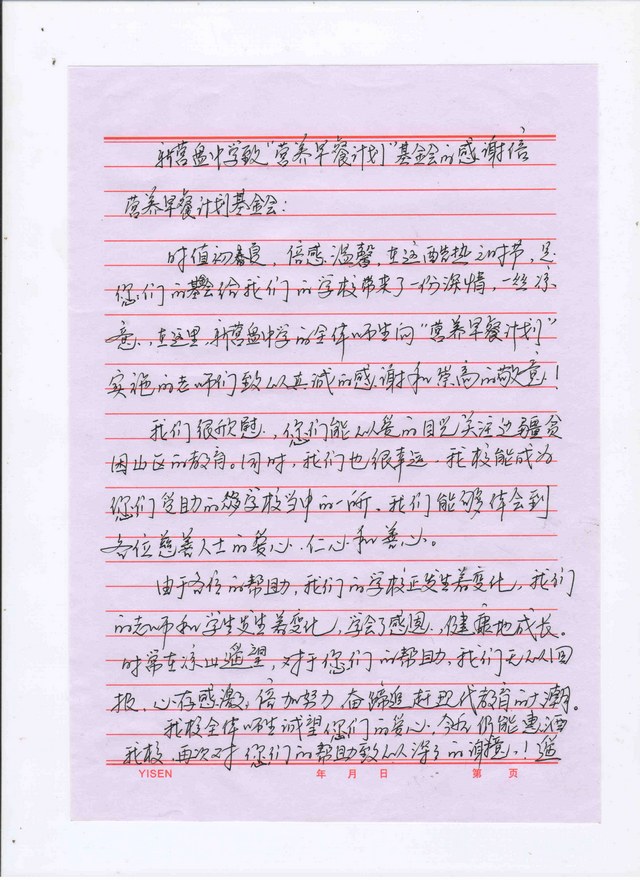 新营盘中学致"营养早餐计划"基金会的感谢信
营养早餐计划基金会:
时值初暑良,倍感温馨 在这酷热之时节,是
您们的基金会给我们的学校带来了一份深情,一丝凉
意,在这里,新营盘中学的全体师生向"营养早餐计划"
实施的老师们致以真诚的感谢和崇高的敬意!
我们很欣慰,您们能以爱的目光关注边疆贫
困山区的教育。同时,我们也很幸运,我校能成为
您们受助的学校当中的一所,我们能够体会到
各位慈善人士的爱心、仁心和善心。
由于各位的帮助,我们的学校正发生着变化,我们
的老师和学生发生着变化,学会了感恩,健康地成长。
时常在凉山遥望,对于您们的帮助,我们无以回
报,心存感激,倍加努力,奋蹄追赶现代教育的大潮。
我校全体师生诚望您们的爱心,今后仍能惠洒
我校,再次对您们的帮助致以深深的谢意!遥
YISEN 年 月 日 第 页